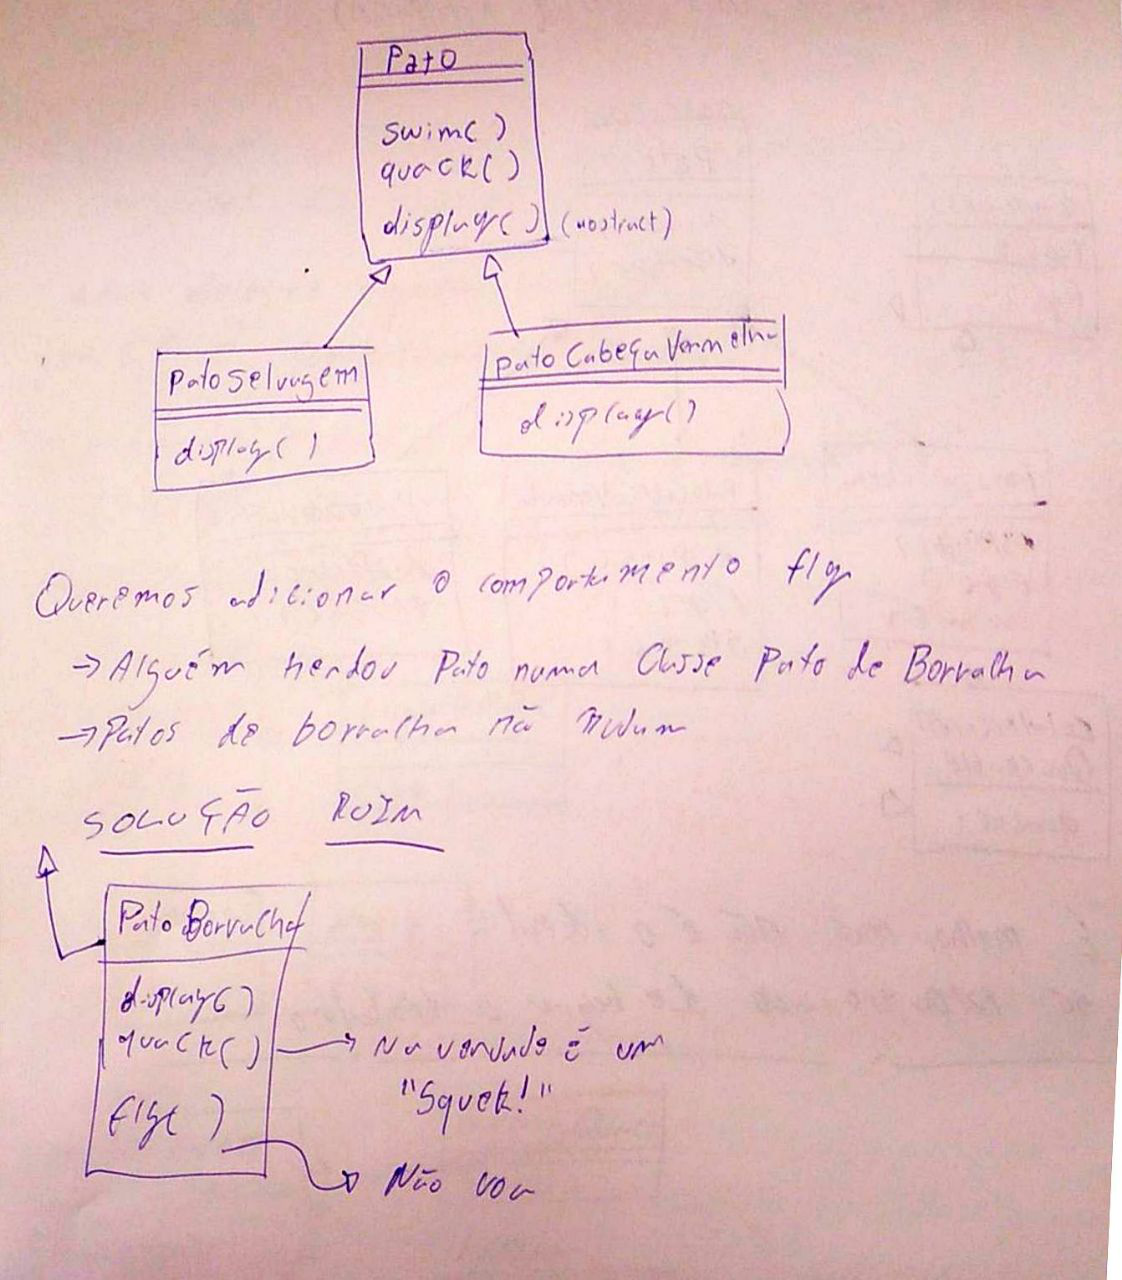 Pato
swim()
quack()
display() (abstract)
PatoSelvagem
display()
Pato Cabeça Vermelha
display()
Queremos adicionar o comportamento fly
→ Alguém herdou Pato numa Classe Pato de Borracha
→ Patos de borracha não
SOLUÇÃO RUIM
Pato Borracha
display()
quack() → Na verdade é um
"Squek!"
fly()
→ Não voa